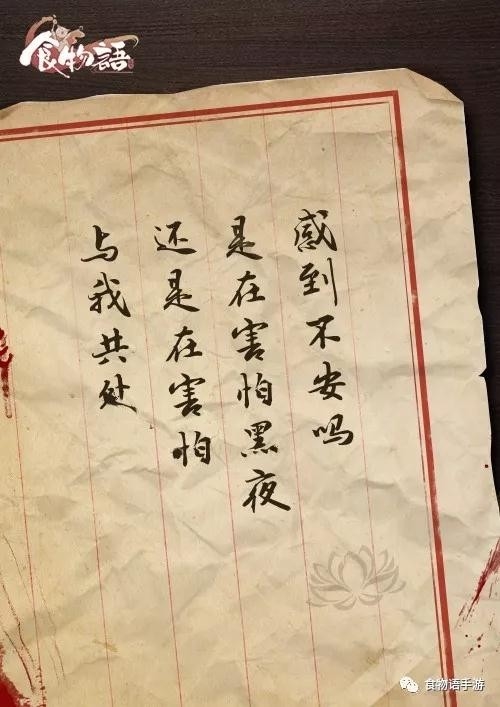 食物語
感到不安吗
是在害怕黑夜
还是在害怕
与我共处
食物语手游